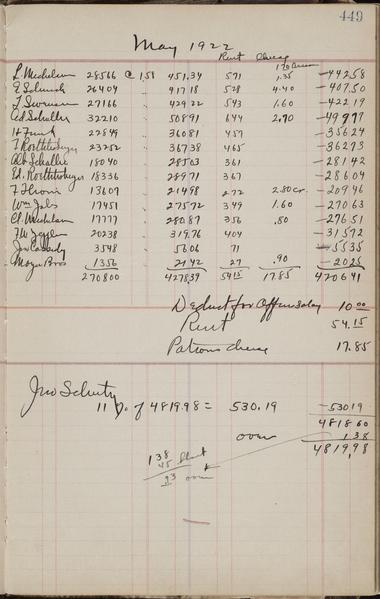 449
May 1922
Rent Cheese
170 
L. Michelson 28566 @ 1.58 451.34 571 1.35 -442.58
E Schmidt 26404 " 417.18 528 4.40 -407.50
F Swenson 27166 " 429.22 543 1.60 -422.19
Ad Schuller 32210 " 508.91 644 2.90 -499.77
H Funk 22849 " 360.81 457 -356.24
23252 " 367.38 465 -362.73
Alb Schallie 18040 " 285.03 361 -281.42
Ed. 18336 " 289.71 367 -286.04
F 13609 " 214.98 272 2.80 cr. -209.46
Wm Jabs 17451 " 275.72 349 1.60 -270.63
17777 " 280.87 356 .80 -276.51
F W 20238 " 319.76 404 -315.72
Jas Cassidy 3548 " 56.06 71 -55.35
Bros 1356 " 21.42 27 .90 -20.25
270800 4278.39 54.15 17.85 4206.41
Deduct for Officer Salary 10.00
Rent 54.15
Patrons cheese 17.85
Jno Schutz
11 % of 4819.98 = 530.19 -530.19
4818.60
over 1.38
4819.98
138
45 Short
93 over